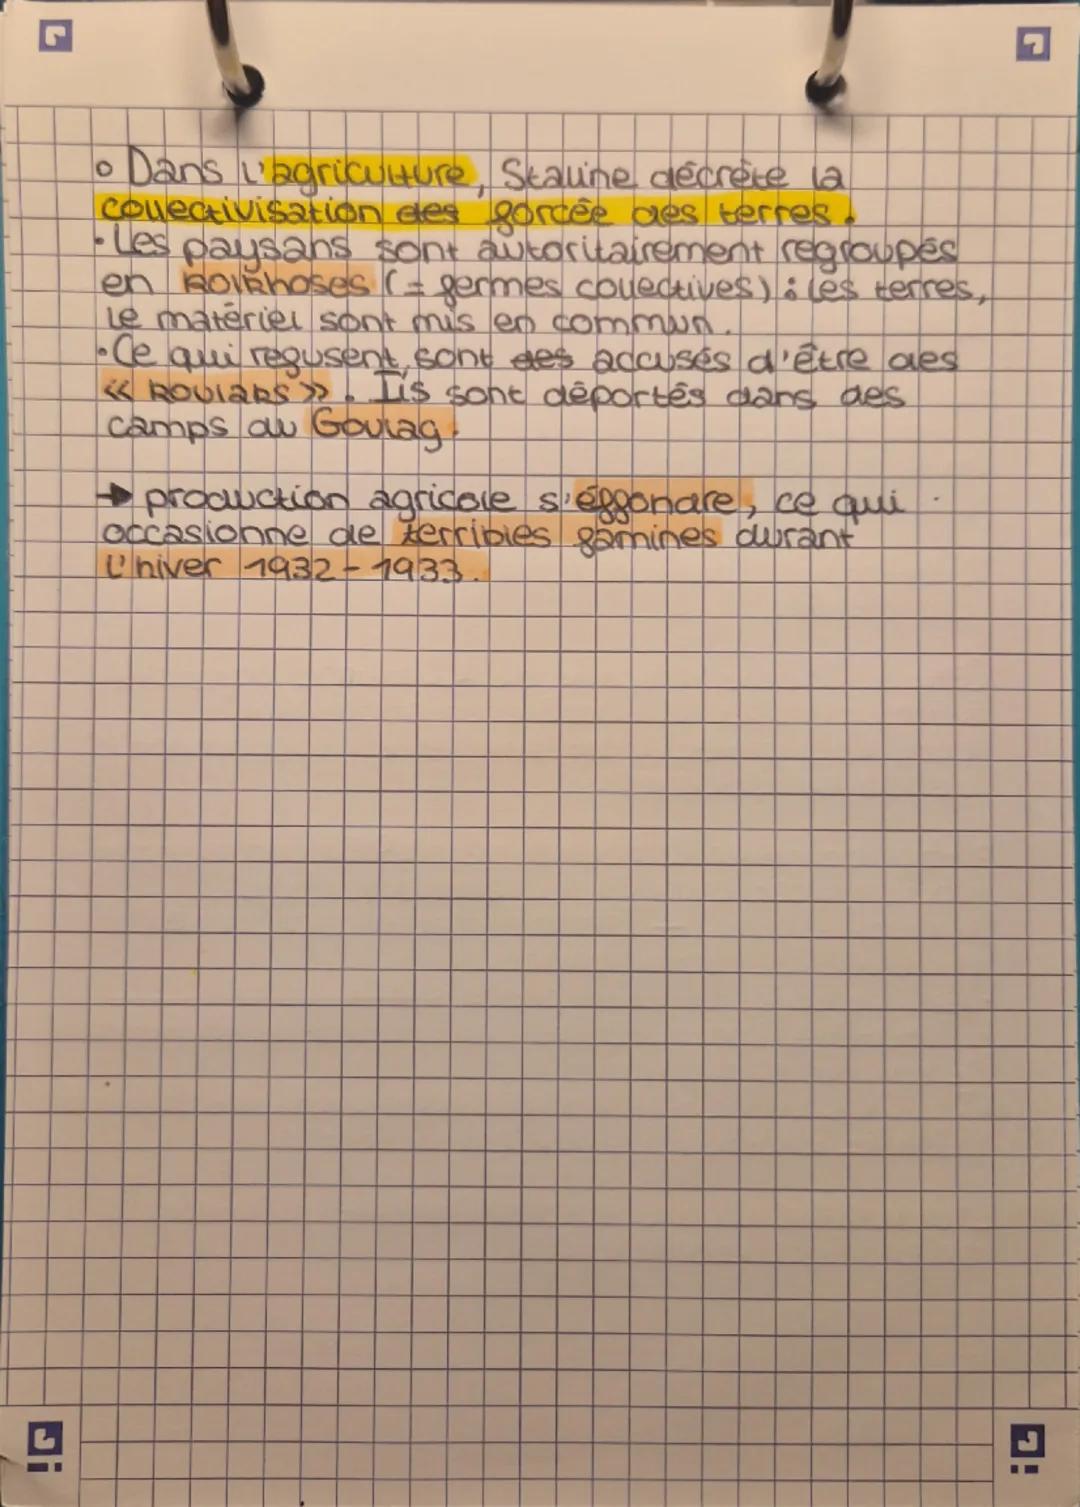 ° Dans l'agriculture, Staline décrète la
collectivisation des forcée des terres.
• Les paysans sont autoritairement regroupés
en kolkhoses (= fermes collectives) : les terres,
le matériel sont mis en commun.
• Ce qui refusent, sont des accusés d'être des
« koulaks ». Ils sont déportés dans des
camps du Goulag.
→ production agricole s'éffondre, ce qui
occasionne de terribles famines durant
l'hiver 1932 - 1933.